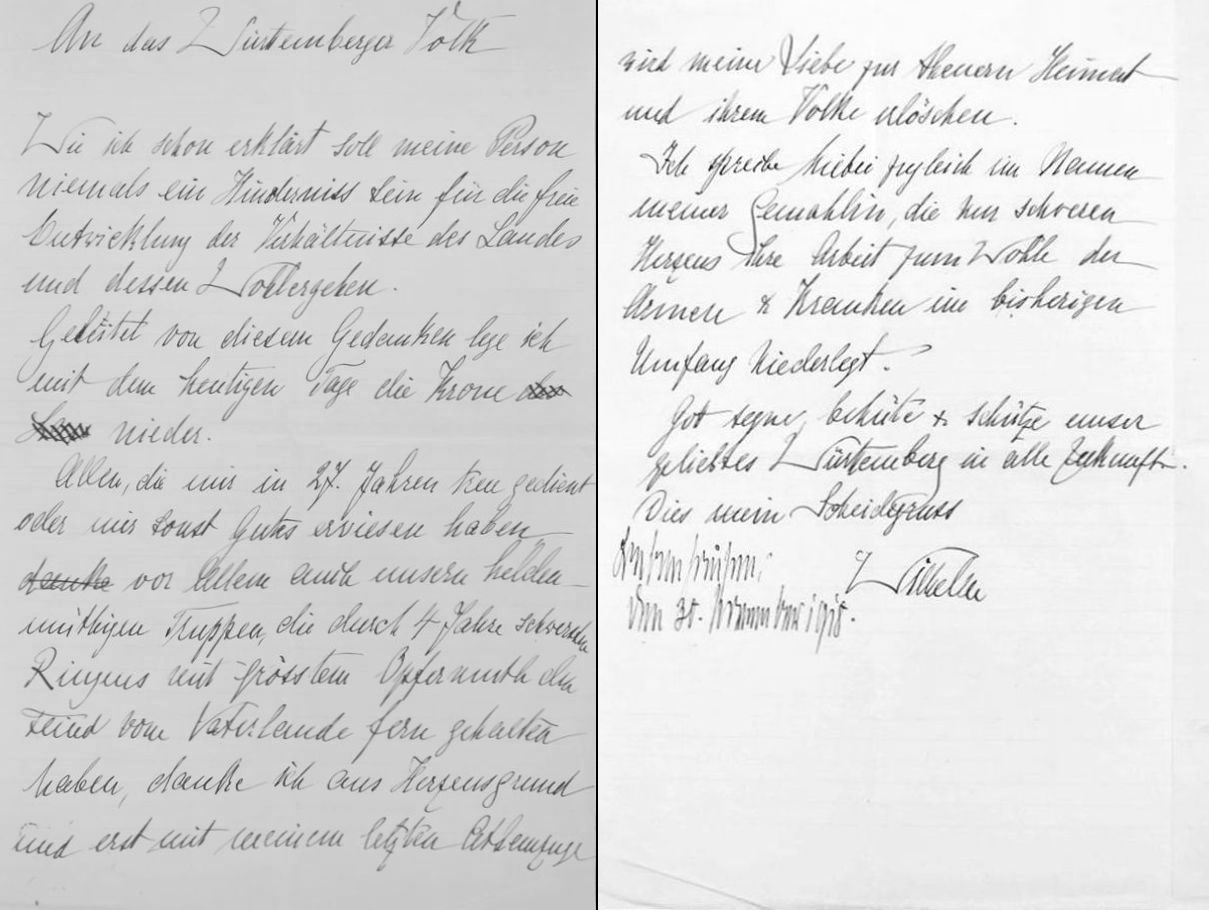 An das Würtemberger Volk
Wie ich schon erklärt soll meine Person
niemals ein Hinderniss sein für die freie
Entwicklung der Verhältnisse des Landes
und dessen Wohlergehen.
Geleitet von diesem Gedanken lege ich
mit dem heutigen Tage die Krone
nieder.
Allen, die mir in 27. Jahren treu gedient
oder mir sonst Gutes erwiesen haben
danke vor Allem auch unsern helden-
müthigen Truppen, die durch 4 Jahre schweren
Ringens mit grösstem Opfermuth den
Feind vom Vaterlande fern gehalten
haben, danke ich aus Herzensgrund
und erst mit meinem letzten Athemzuge
wird meine Liebe zur theuern Heimat
und ihrem Volke erlöschen.
Ich spreche hiebei zugleich im Namen
meiner Gemahlin, die nur schweren
Herzens ihre Arbeit zum Wohle der
Armen & Kranken im bisherigen
Umfang niederlegt.
Gott segne, behüte & schütze unser
geliebtes Würtemberg in alle Zukunft.
Dies mein Scheidegruss
Wilhelm
den 30. November 1918.